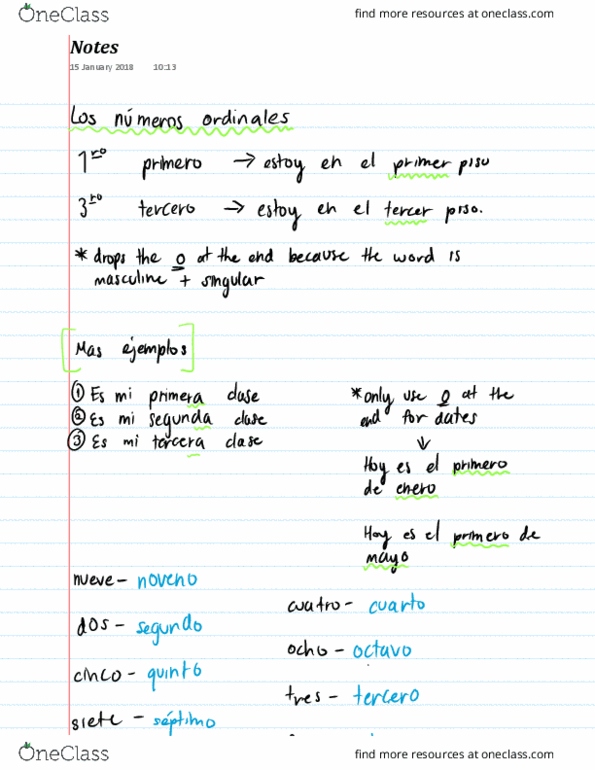 OneClass
find more resources at oneclass.com
Notes
15 January 2018 10:13
Los números ordinales
1ro primero → estoy en el primer piso
3ro tercero → estoy en el tercer piso.
* drops the o at the end because the word is
masculine + singular
[Mas ejemplos]
① Es mi primera clase
② Es mi segunda clase
③ Es mi tercera clase
*only use o at the
end for dates
↓
Hoy es el primero
de enero
Hoy es el primero de
mayo
nueve - noveno
dos - segundo
cinco - quinto
siete - séptimo
cuatro - cuarto
ocho - octavo
tres - tercero
OneClass
find more resources at oneclass.com